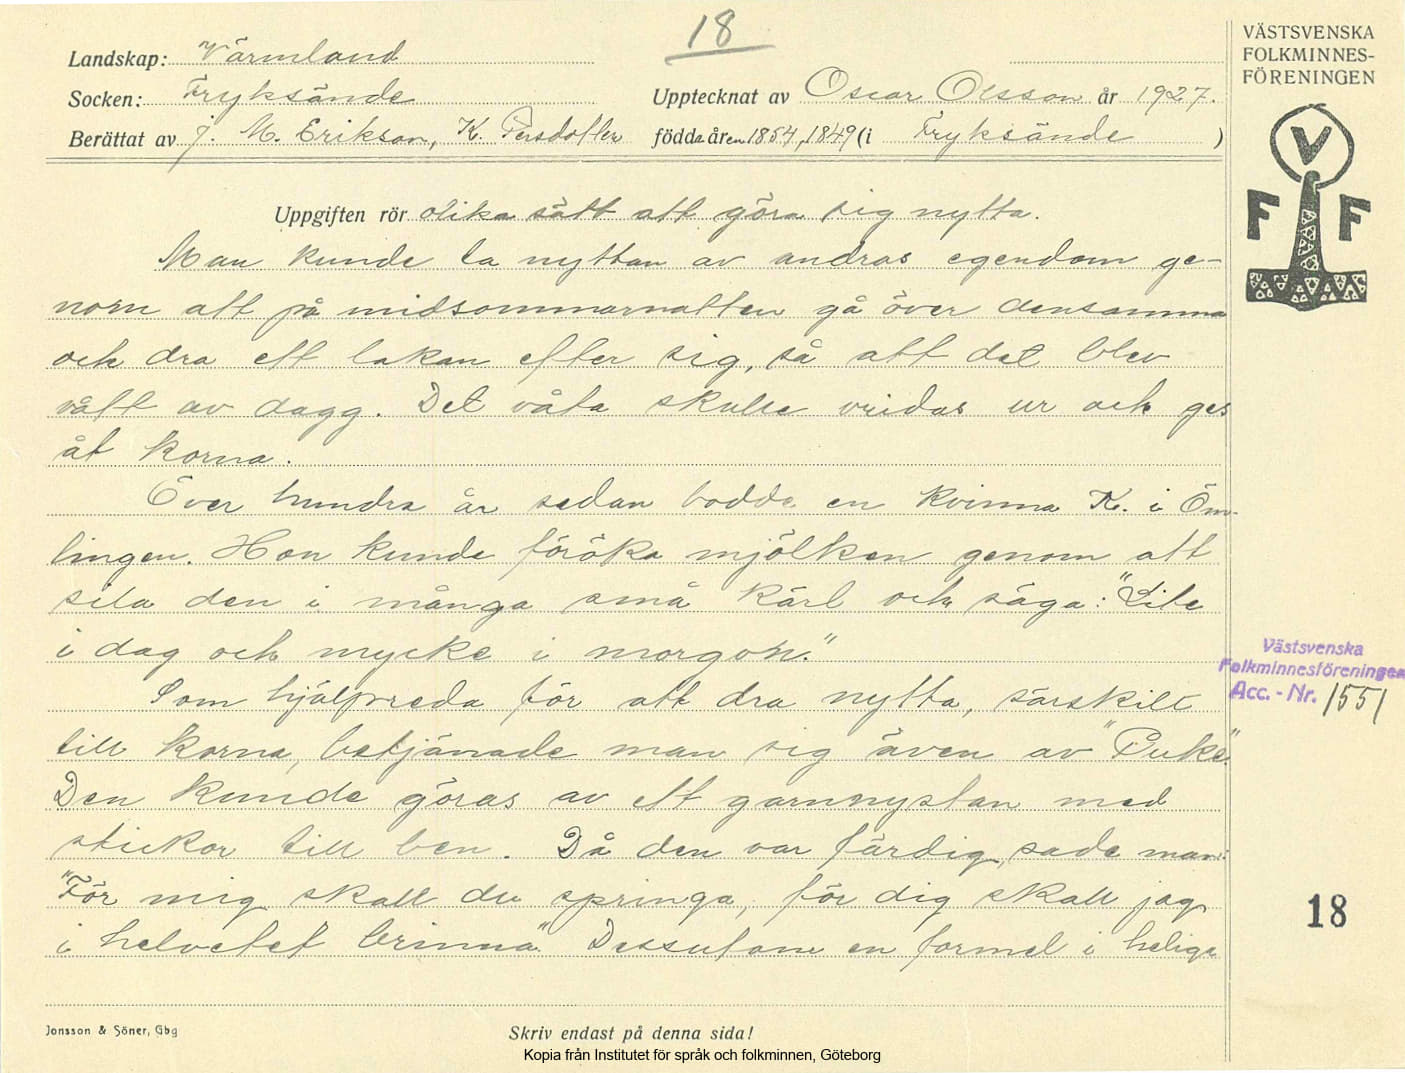 18
Landskap: Värmland
Socken: Fryksände
Upptecknat av Oscar Olsson år 1927.
Berättat av J. M. Erikson, K. Persdotter födda åren 1854, 1849 (i Fryksände )
Uppgiften rör olika sätt att göra sig nytta.
Man kunde ta nyttan av andras egendom ge-
nom att på midsommarnatten gå över densamma
och dra ett lakan efter sig, så att det blev
vått av dagg. Det våta skulle vridas ur och ges
åt korna.
Över hundra år sedan bodde en kvinna K. i Öm-
lingen. Hon kunde föröka mjölken genom att
sila den i många små kärl och säga: "Lite
i dag och mycke i morgon."
Som hjälpreda för att dra nytta, särskilt
till korna, betjänade man sig även av "Puke".
Den kunde göras av ett garnnystan med
stickor till ben. Då den var färdig, sade man:
"För mig skall du springa, för dig skall jag
i helvetet brinna". Dessutom en formel i heliga
Jonsson & Söner, Gbg
Skriv endast på denna sida!
Kopia från Institutet för språk och folkminnen, Göteborg
VÄSTSVENSKA
FOLKMINNES-
FÖRENINGEN
V
F F
Västsvenska
Folkminnesföreningen
Acc. - Nr. 1551
18